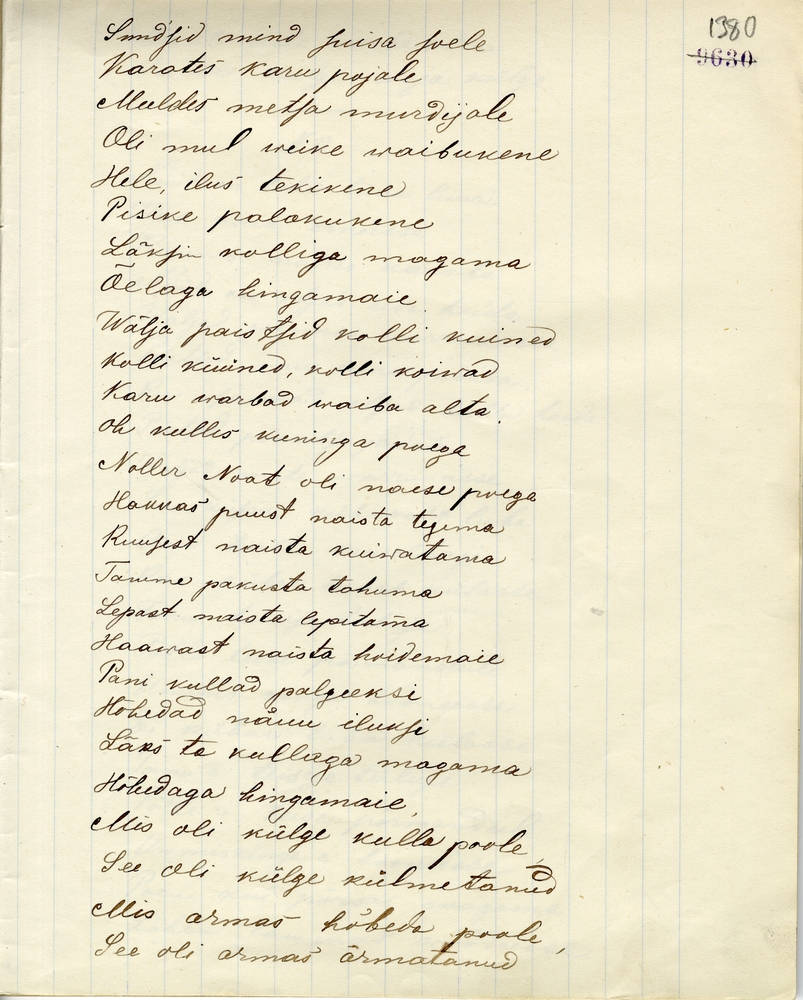 1380
9630
Sundsid mind suisa soele
Karates karu pojale
Muldes metsa murdijale
Oli mul weike waibukene
Hele, ilus tekikene
Pisike palakukene
Läksin kolliga magama
Õelaga hingamaie
Wälja paistsid kolli kuined
Kolli küüned, kolli koiwad
Karu warbad waiba alta.
Oh kullis kuninga poega
Noller Noat oli naese poega
Hakkas puust naista tegema
Ruusest naista kuiwatama
Tamme pakusta tahuma
Lepast naista lepitama
Haawast naista hoidemaie
Pani kullad palgeeksi
Hõbedad näuu iluksi
Läks ta kullaga magama
Hõbedaga hingamaie,
Mis oli külge kulla poole,
See oli külge külmetanud
Mis armas hõbeda poole,
See oli armas ärmatanud